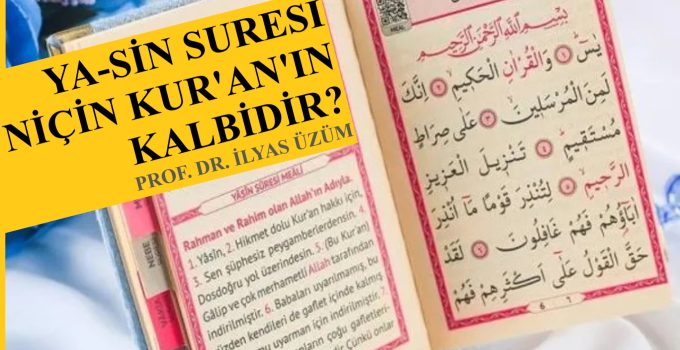 YA-SİN SURESİ
NİÇİN KUR'AN'IN
KALBİDİR?
PROF. DR. İLYAS ÜZÜM
YÂSİN SÛRESİ MEÂLİ
Rahman ve Rahim olan Allah'ın Adıyla.
1. Yâsîn, 2. Hikmet dolu Kur'an hakkı için,
3. Sen şüphesiz peygamberlerdensin. 4.
Dosdoğru yol üzerindesin. 5. (Bu Kur'an)
Gâlip ve çok merhametli Allah tarafından
indirilmiştir. 6. Babaları uyarılmamış, bu
yüzden kendileri de gaflet içinde kalmış
uyarman için indirilmiştir. 7.
onların çoğu gafletleri-
Çünkü onlar
بِسْمِ اللّٰهِ الرَّحْمٰنِ الرَّحِيمِ
يٰسٓ ١ وَالْقُرْاٰنِ الْحَكِيمِ ٢ اِنَّكَ
لَمِنَ الْمُرْسَلِينَ ٣ عَلٰى صِرَاطٍ
مُسْتَقِيمٍ ٤ تَنْزِيلَ الْعَزِيزِ
الرَّحِيمِ ٥ لِتُنْذِرَ قَوْمًا مَٓا اُنْذِرَ
اٰبَٓاؤُ۬هُمْ فَهُمْ غَافِلُونَ ٦ لَقَدْ
حَقَّ الْقَوْلُ عَلٰٓى اَكْثَرِهِمْ فَهُمْ
6 ٦